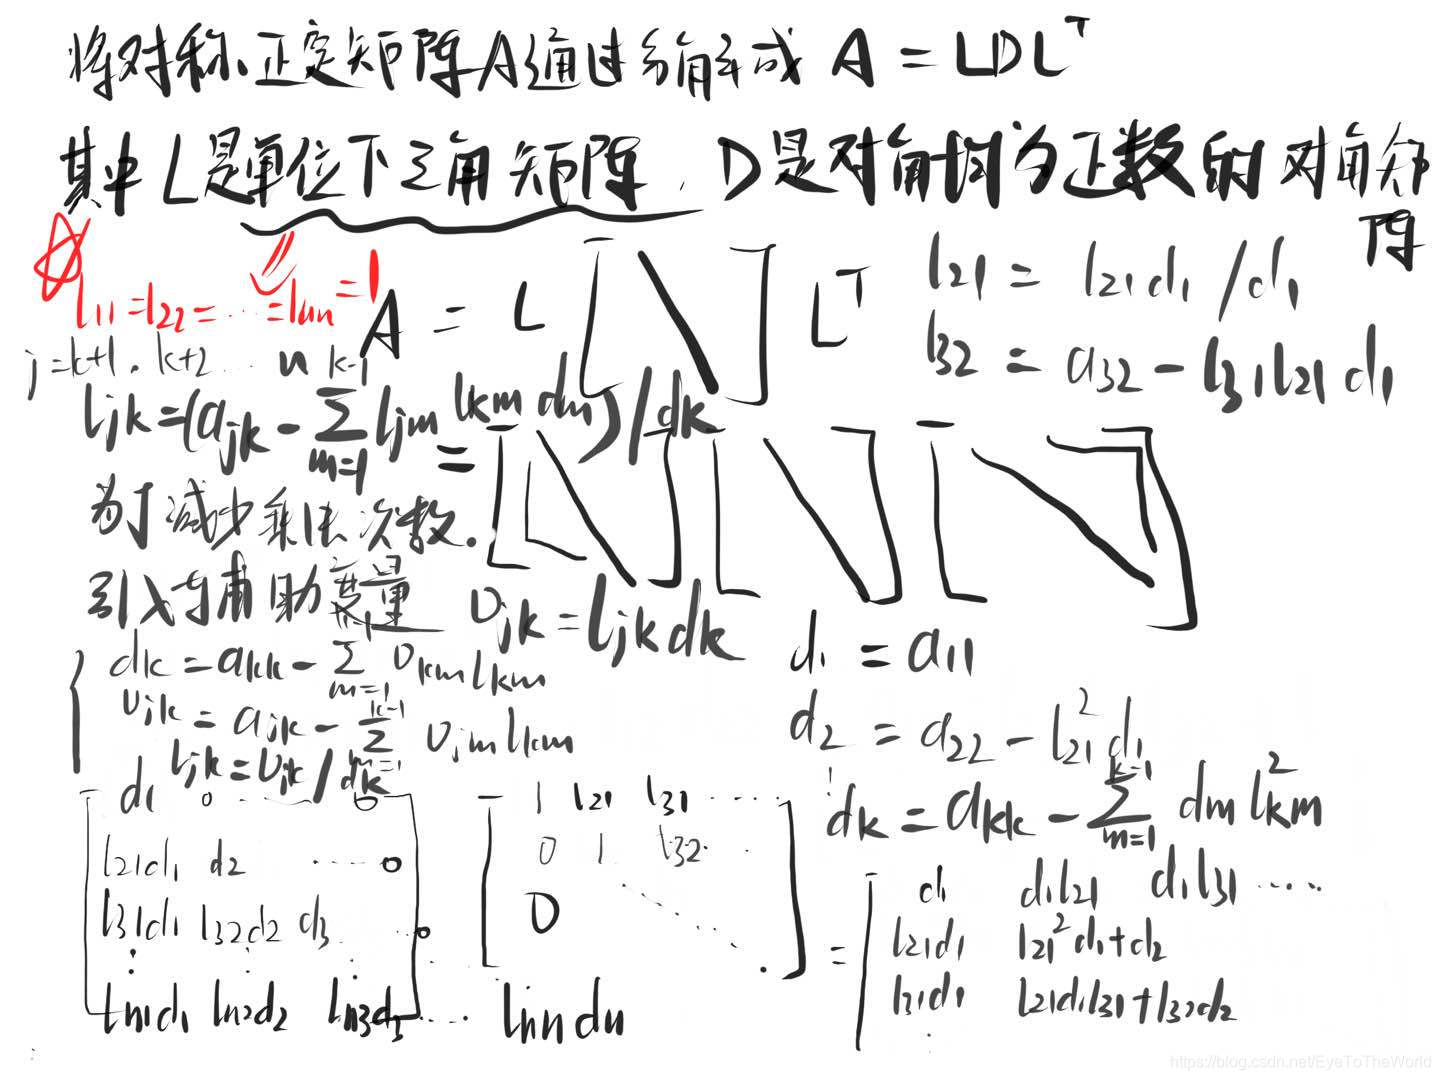 将对称正定矩阵A通过分解成 A = LDL^T
其中 L是单位下三角矩阵, D是对角均为正数的对角矩阵
l11=l22=…=lnn=1
A = L [ \ ] L^T
l21 = l21d1/d1
l32 = a32 - l31l21d1
j=k+1, k+2 … n
ljk=(ajk - Σ_{m=1}^{k-1} ljm lkm dm)/dk
=
为了减少乘法次数.
引入与辅助变量 υjk = ljkdk
dk = akk - Σ_{m=1}^{k-1} υkm lkm
υjk = ajk - Σ_{m=1}^{k-1} υjm lkm
ljk = υjk/dk
d1 = a11
d2 = a22 - l21^2 d1
dk = akk - Σ_{m=1}^{k-1} dm lkm^2
d1 0 … 0
l21d1 d2 … 0
l31d1 l32d2 d3 … 0
ln1d1 ln2d2 ln3d3 … lnndn
1 l21 l31 …
0 1 l32 …
0
= d1 d1l21 d1l31 …
l21d1 l21^2d1+d2
l31d1 l21d1l31+l32d2
https://blog.csdn.net/EyeToTheWorld